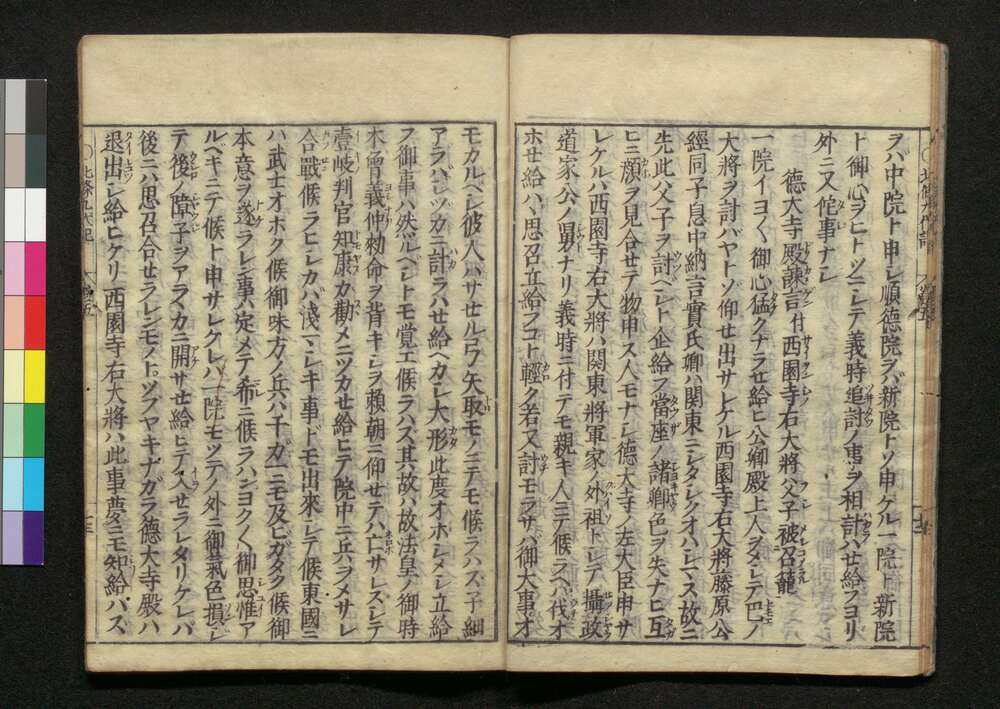 ヲバ中院ト申シ順德院ヲバ新院トソ申ケル一院ト新院
ト御心ヲヒトツニシテ義時追討ノ事ヲ相計ハセ給フヨリ
外ニ又佗事ナシ
德大寺殿諫言付西園寺右大將父子被召籠
一院イヨ〱御心猛クナラセ給ヒ公卿殿上人ヲメシテ巴ノ
大將ヲ討ハヤトソ仰セ出サレケル西園寺右大將藤原公
經同子息中納言實氏卿ハ關東ニシタシクオハシマス故ニ
先此父子ヲ討ベシト企給フ當座ノ諸卿色ヲ失ナヒ互
ヒニ顔ヲ見合セテ物申ス人モナシ德大寺ノ左大臣申サ
レケルハ西園寺右大將ハ關東將軍家ノ外祖トシテ攝政
道家公ノ舅ナリ義時ニ付テモ親キ人ニテ候ラヘバ伐オ
ホセ給ハヽ思召立給フコト輕ク若又討モラサバ御大事ニオ
モカルベシ彼人ハサセル弓矢取モノニテモ候ラハズ子細
アラバシヅカニ計ラハセ給ヘカシ大形此度オホシメシ立給
フ御事ハ然ルベシトモ覚エ候ラハズ其故ハ故法皇ノ御時
木曽義仲勅命ヲ背キシヲ頼朝ニ仰セテハ亡サレズシテ
壹岐判官知康カ勸メニツカセ給ヒテ院中ニ兵ヲメサレ
合戰候ラヒシカバ淺マシキ事ドモ出來シテ候東國ニ
ハ武士オホク候御味方ノ兵ハ十ガ一ニモ及ビガタク候御
本意ヲ遂ラレン事ハ定メテ希ニ候ラハンヨク〱御思惟ア
ルベキニテ候ト申サレケレハ一院モツテノ外ニ御氣色損シ
テ後ノ障子ヲアラヽカニ開サセ給ヒテ入セラレタリケレバ
後ニハ思召合セラレンモノトツブヤキナガラ德大寺殿ハ
退出シ給ヒケリ西園寺右大將ハ此事夢ニモ知給ハズ
○北條九代記